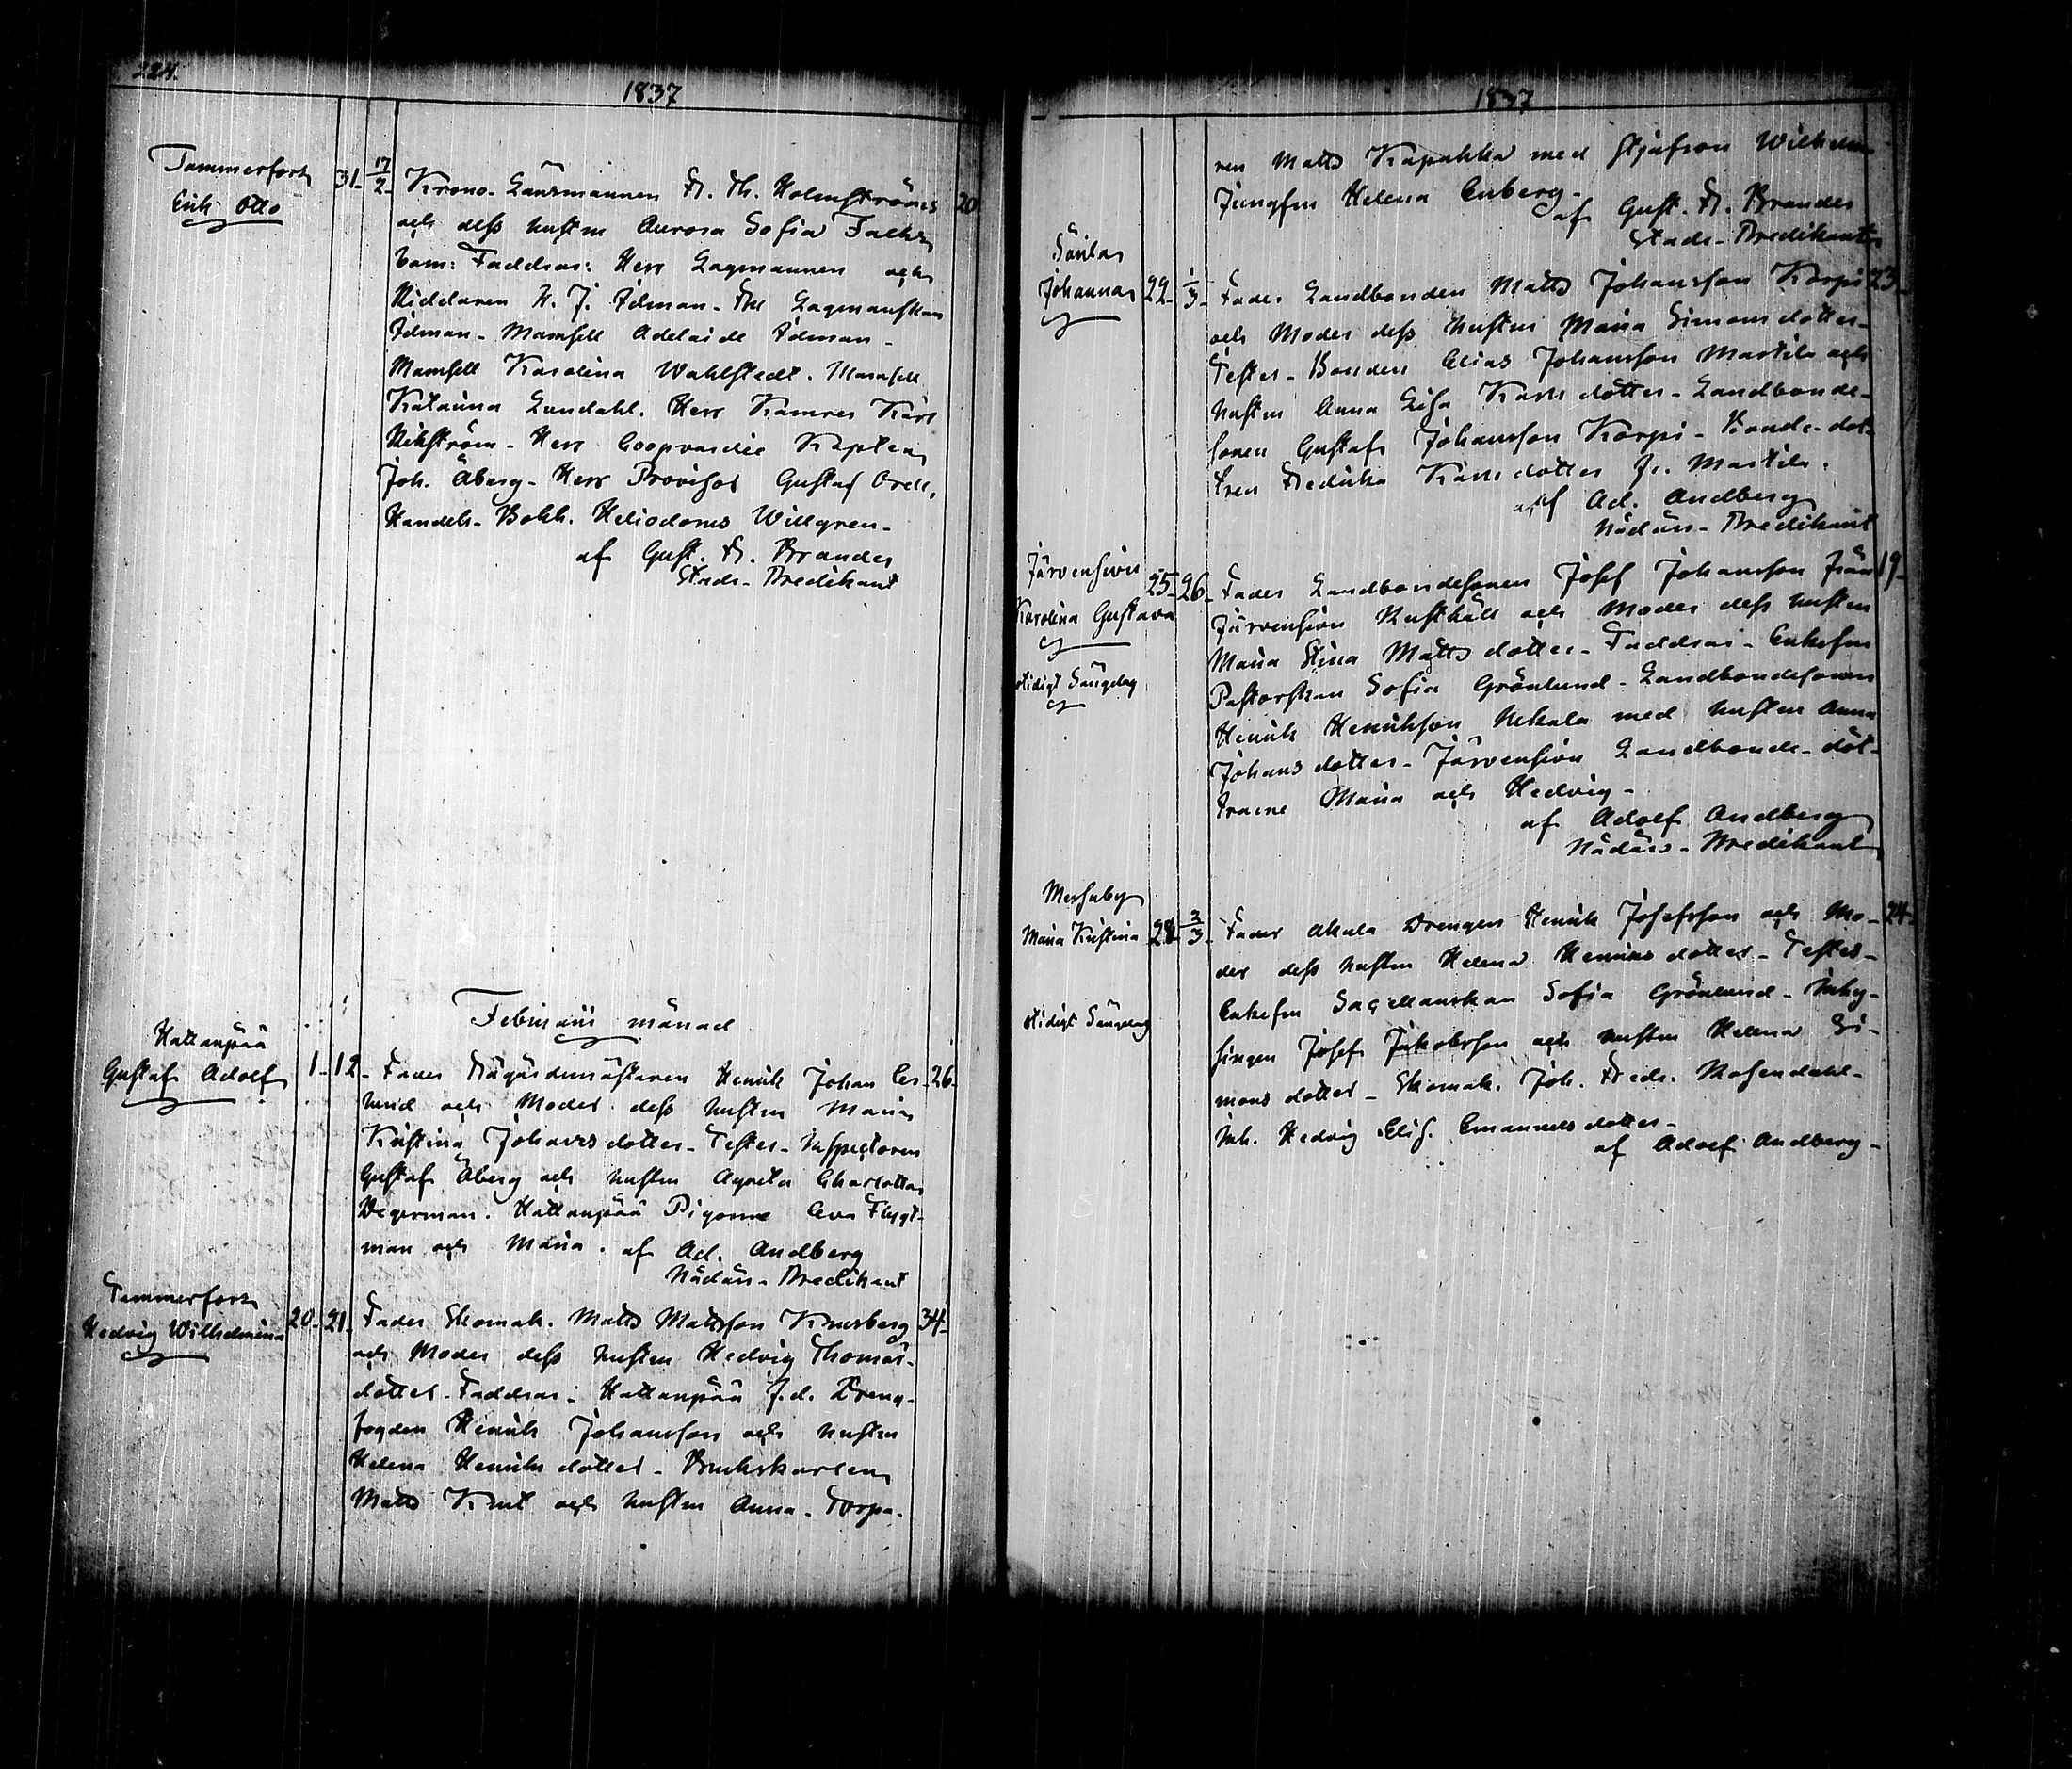 224.
1837
Tammerfors
Erik Otto
31 17/2 Krono-Länsmannen Fr. Th. Holmströms 20
och dess hustru Aurora Sofia Falcks
barn: Faddrar: Herr Lagmannen och
Riddaren N. J. Idman - Fru Lagmanskan
Idman - Mamsell Adelaide Idman -
Mamsell Karolina Wahlstedt. Mamsell
Katarina Lundahl. Herr Kamrer Karl
Wikström - Herr Coopvardie Kapten
Joh. Åberg - Herr Provisor Gustaf Orell,
Handels-Bokh. Heliodorus Willgren -
af Gust. Fr. Brander
Stads-Predikant
Februarii månad
Hattanpää
Gustaf Adolf
1 - 12 - Fader Trägårdsmästaren Henrik Johan - 26 -
och Moder dess hustru Maria
Kristina Johansdotter - Testes - Inspectoren
Gustaf Åberg och hustru Agneta Charlotta
Degerman. Hattanpää Pigorne Eva Flygt-
man och Maria. af Ad. Andberg
Nådårs-Predikant
Tammerfors
Hedvig Wilhelmina
20 - 21 - Fader Skomak. Matts Mattsson Knusberg 34 -
och Moder dess hustru Hedvig Thomas-
dotter - Faddrar - Hattanpää f.d. Dreng-
fogden Henrik Johansson och hustru
Helena Henriksdotter - Brukskarlen
Matts Knut och hustru Anna. Torpa-
1837
ren Matts Kapakka med styfson Wilhelm
Jungfru Helena Enberg -
af Gust. Fr. Brander
Stads-Predikant
Santa
Johanna
22 - 1/3 - Fader Landbonden Matts Johansson Korpi 23 -
och Moder dess hustru Maria Simonsdotter -
Testes - Bonden Elias Johansson Marttila och
hustru Anna Lisa Karlsdotter - Landbonde-
sonen Gustaf Johansson Korpi - Bonde-dot-
tren Fredrika Karlsdotter fr. Marttila.
af Ad. Andberg
Nådårs-Predikant
Järvensivu
Karolina Gustava
25 - 26 - Fader Landbondesonen Josef Johansson från 19 -
Järvensivu Rusthåll och Moder dess hustru
Maria Stina Mattsdotter - Faddrar - Enkefru
Pastorskan Sofia Grönlund - Landbondesonen
Henrik Henriksson Nekala med hustru Anna
Johansdotter - Järvensivu Landbonde-döt-
trarne Maria och Hedvig -
af Adolf Andberg
Nådårs-Predikant
otidigt Sängelag
Messuby
Maria Kristina
28 - 2/3 - Fader Ahala Drengen Henrik Josefsson och Mo- 24 -
der dess hustru Helena Henriksdotter - Testes -
Enkefru Sacellanskan Sofia Grönlund - Inhy-
singen Josef Jakobsson och hustru Helena Si-
monsdotter - Skomak. Joh. Fredr. Rosendahl -
Inh. Hedvig Elis. Emanuelsdotter -
af Adolf Andberg -
otidigt Sängelag